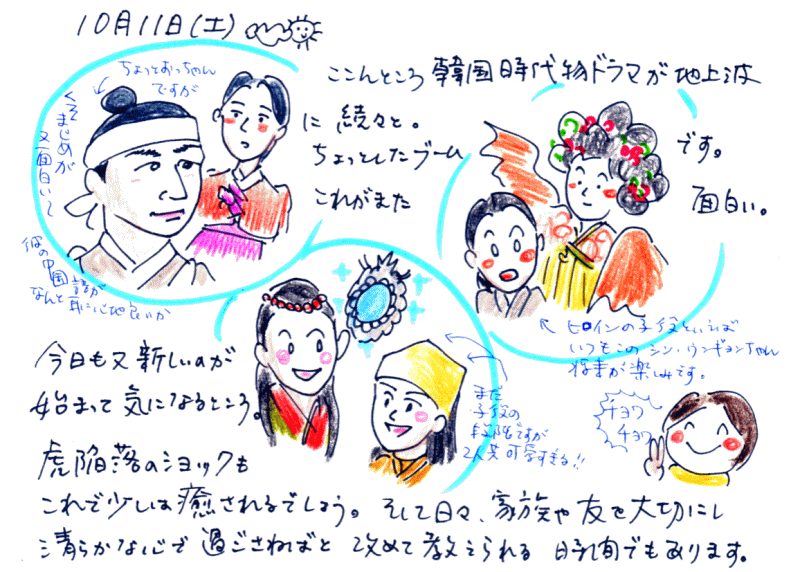 10月11日(土)
ちょっとおっちゃん
ですが
くそまじめが
又面白いして
彼の中国語が
なんと耳に心地良いか
ここんところ韓国時代物ドラマが地上波
に続々と。
ちょっとしたブーム
です。
これがまた
面白い。
ヒロインの子役といえば
いつもこのシン・ウンギョンちゃん
将来が楽しみです。
今日も又新しいのが
始まって気になるところ。
まだ
子役の
段階ですが
2人共可愛すぎる!!
チョワ
チョワ
虎陥落のショックも
これで少しは癒されるでしょう。そして日々、家族や友を大切にし
清らかな心で過ごさねばと改めて教えられる時間でもあります。